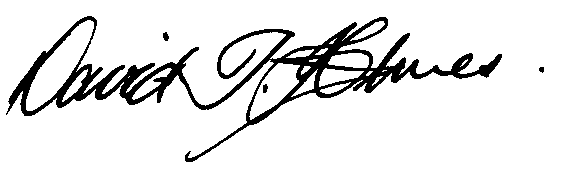 David T. Holmes.